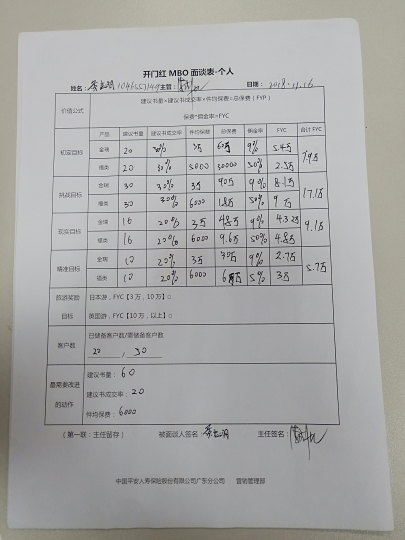 开门红 MBO 面谈表-个人
姓名: 1046551149 主管: 日期: 2018.11.16
价值公式
建议书量×建议书成交率×件均保费=总保费（FYP）
保费*佣金率=FYC
产品 建议书量 建议书成交率 件均保额 总保费 佣金率 FYC 合计 FYC
初定目标
金瑞 20 30% 60万 9% 5.4万 7.9万
福类 20 30% 5000 30000 50%
挑战目标
金瑞 30 30% 3万 90万 9% 8.1万 17.1万
福类 30 30% 6000 50% 9万
现实目标
金瑞 16 20% 3万 48万 9% 4.32万 9.1万
福类 16 20% 6000 9.6万 50% 4.8万
精准目标
金瑞 10 20% 3万 9% 2.7万 5.7万
福类 10 20% 6000 6万 5% 3万
旅游奖励
目标
日本游，FYC【3 万，10 万】□
英国游，FYC【10 万，以上】□
客户数
已储备客户数/需储备客户数
20 / 30
最需要改进
的动作
建议书量：60
建议书成交率：20
件均保费：6000
（第一联：主任留存） 被面谈人签名: 主任签名:
中国平安人寿保险股份有限公司广东分公司 营销管理部